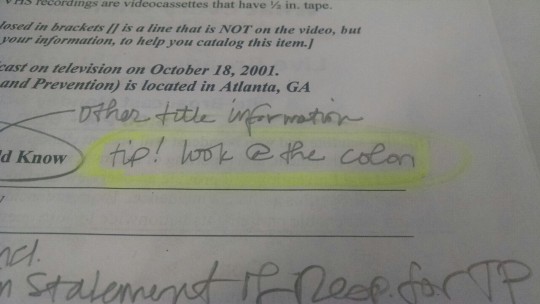 VHS recordings are videocassettes that have ½ in. tape.
losed in brackets [] is a line that is NOT on the video, but
your information, to help you catalog this item.]
cast on television on October 18, 2001.
and Prevention) is located in Atlanta, GA
other title information
d Know tip! look @ the colon
n Statement of Resp. for TP